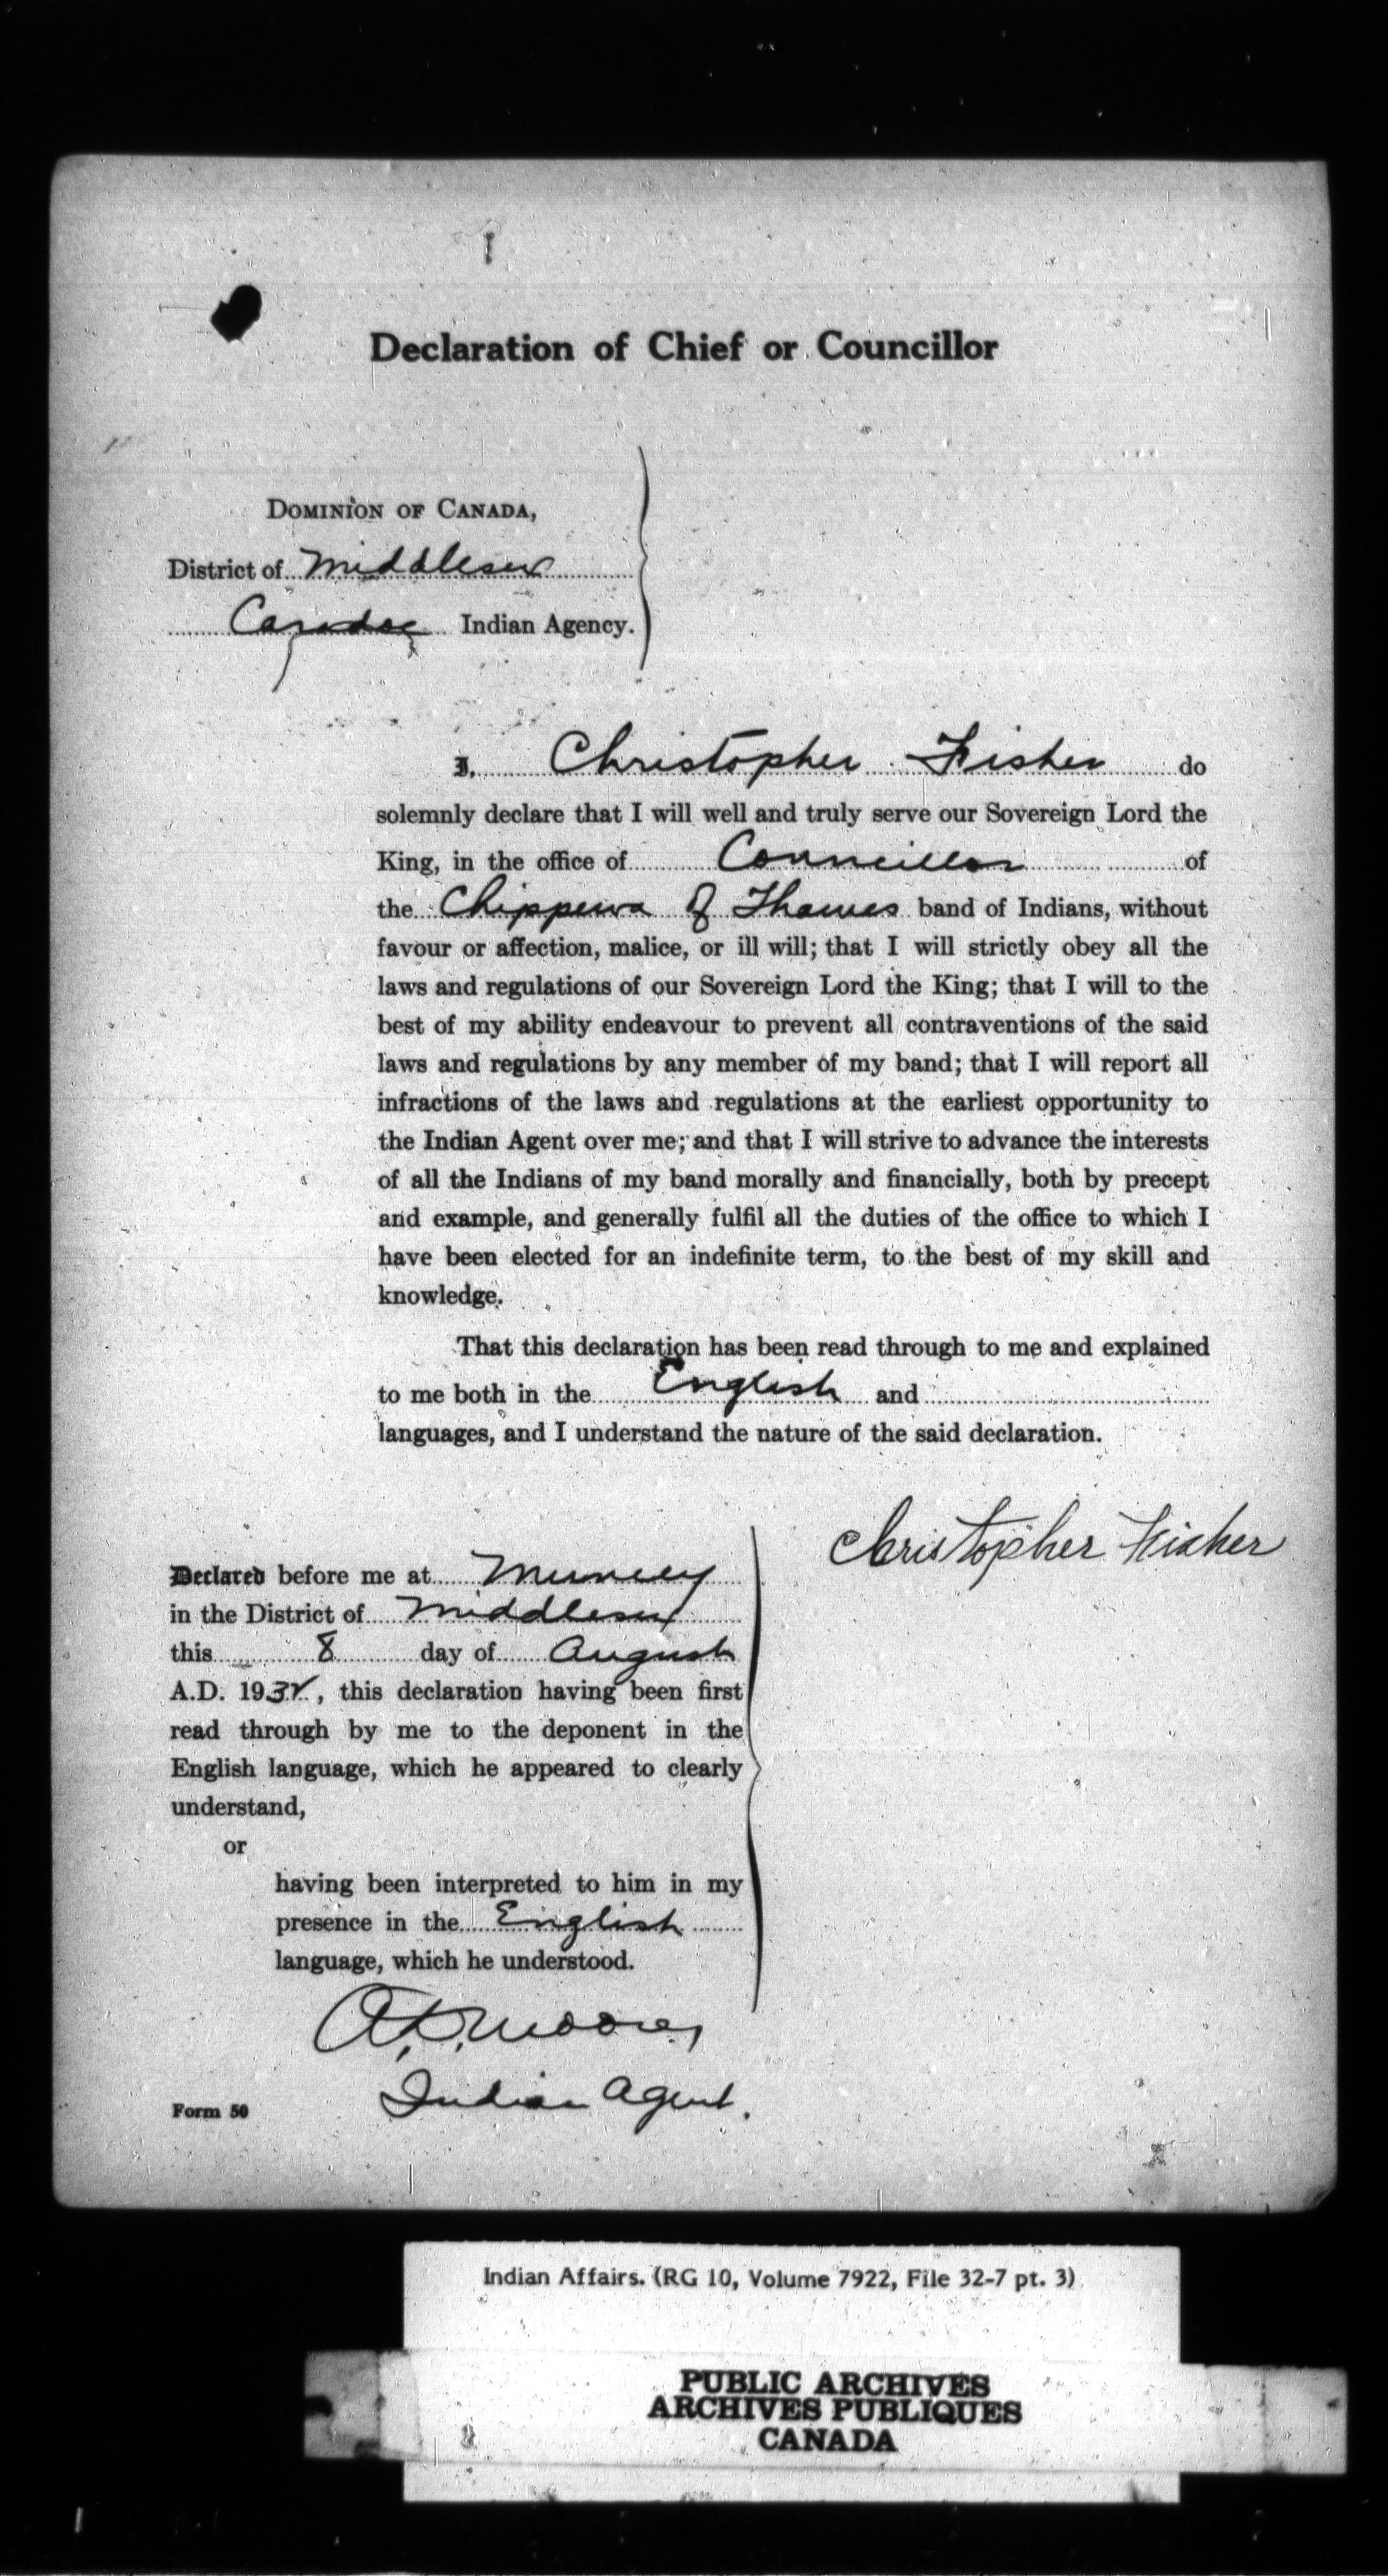 Declaration of Chief or Councillor
DOMINION OF CANADA,
District of Middlesex
Caradoc Indian Agency.
I, Christopher Fisher do
solemnly declare that I will well and truly serve our Sovereign Lord the
King, in the office of Councillor of
the Chippewa of Thames band of Indians, without
favour or affection, malice, or ill will; that I will strictly obey all the
laws and regulations of our Sovereign Lord the King; that I will to the
best of my ability endeavour to prevent all contraventions of the said
laws and regulations by any member of my band; that I will report all
infractions of the laws and regulations at the earliest opportunity to
the Indian Agent over me; and that I will strive to advance the interests
of all the Indians of my band morally and financially, both by precept
and example, and generally fulfil all the duties of the office to which I
have been elected for an indefinite term, to the best of my skill and
knowledge.
That this declaration has been read through to me and explained
to me both in the English and
languages, and I understand the nature of the said declaration.
Christopher Fisher
Declared before me at Muncey
in the District of Middlesex
this 8 day of August
A.D. 1932, this declaration having been first
read through by me to the deponent in the
English language, which he appeared to clearly
understand,
or
having been interpreted to him in my
presence in the English
language, which he understood.
A.D. Moore,
Indian Agent.
Form 50
Indian Affairs. (RG 10, Volume 7922, File 32-7 pt. 3)
PUBLIC ARCHIVES
ARCHIVES PUBLIQUES
CANADA